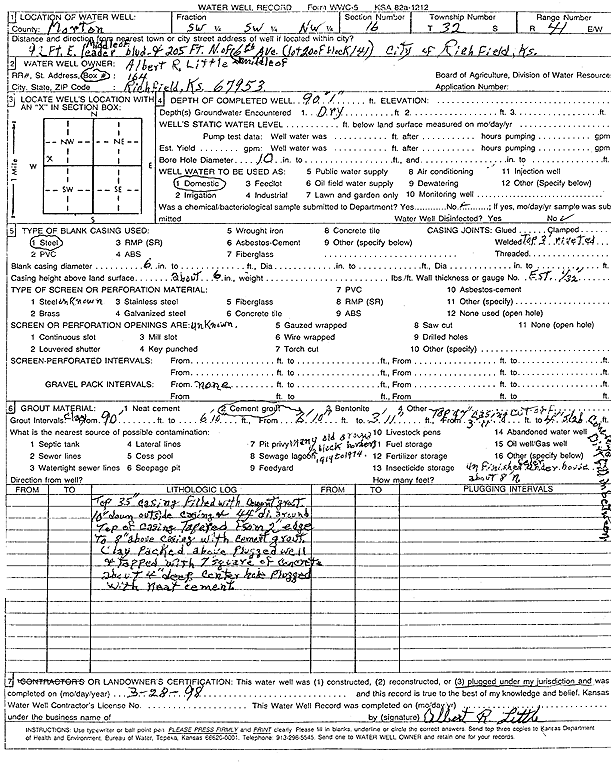 WATER WELL RECORD Form WWC-5 KSA 82a-1212
1 LOCATION OF WATER WELL: Fraction Section Number Township Number Range Number
County: Morton SW ¼ SW ¼ NW ¼ 16 T 32 S R 41 E/W
Distance and direction from nearest town or city street address of well if located within city?
92 Ft. E. leader blvd. & 205 Ft. N. of 6th Ave. (lot 20 of block 141) City of Richfield, Ks.
2 WATER WELL OWNER: Albert R. Little
RR#, St. Address, Box #: 164 Board of Agriculture, Division of Water Resource
City, State, ZIP Code : Richfield, Ks. 67953 Application Number:
3 LOCATE WELL'S LOCATION WITH AN "X" IN SECTION BOX:
N
NW NE
W X E
SW SE
S
1 Mile
4 DEPTH OF COMPLETED WELL 90'1" ft. ELEVATION:
Depth(s) Groundwater Encountered 1. Dry ft. 2. ft. 3. ft.
WELL'S STATIC WATER LEVEL ft. below land surface measured on mo/day/yr
Pump test data: Well water was ft. after hours pumping gpm
Est. Yield gpm: Well water was ft. after hours pumping gpm
Bore Hole Diameter 10 in. to ft., and in. to ft.
WELL WATER TO BE USED AS: 5 Public water supply 8 Air conditioning 11 Injection well
1 Domestic 3 Feedlot 6 Oil field water supply 9 Dewatering 12 Other (Specify below)
2 Irrigation 4 Industrial 7 Lawn and garden only 10 Monitoring well
Was a chemical/bacteriological sample submitted to Department? Yes No ; If yes, mo/day/yr sample was sub
mitted Water Well Disinfected? Yes No
5 TYPE OF BLANK CASING USED: 5 Wrought iron 8 Concrete tile CASING JOINTS: Glued Clamped
1 Steel 3 RMP (SR) 6 Asbestos-Cement 9 Other (specify below) Welded Top 3' riveted
2 PVC 4 ABS 7 Fiberglass Threaded
Blank casing diameter 6 in. to ft., Dia in. to ft., Dia in. to ft.
Casing height above land surface about 6 in., weight lbs./ft. Wall thickness or gauge No. Est. 1/32"
TYPE OF SCREEN OR PERFORATION MATERIAL: 7 PVC 10 Asbestos-cement
1 Steel unknown 3 Stainless steel 5 Fiberglass 8 RMP (SR) 11 Other (specify)
2 Brass 4 Galvanized steel 6 Concrete tile 9 ABS 12 None used (open hole)
SCREEN OR PERFORATION OPENINGS ARE: unknown. 5 Gauzed wrapped 8 Saw cut 11 None (open hole)
1 Continuous slot 3 Mill slot 6 Wire wrapped 9 Drilled holes
2 Louvered shutter 4 Key punched 7 Torch cut 10 Other (specify)
SCREEN-PERFORATED INTERVALS: From ft. to ft., From ft. to ft.
From ft. to ft., From ft. to ft.
GRAVEL PACK INTERVALS: From none ft. to ft., From ft. to ft.
From ft. to ft., From ft. to ft.
6 GROUT MATERIAL: 1 Neat cement 2 Cement grout 3 Bentonite 4 Other
Grout Intervals: Clay From 90 ft. to ft., From ft. to ft., From ft. to ft.
What is the nearest source of possible contamination: 10 Livestock pens 14 Abandoned water well
1 Septic tank 4 Lateral lines 7 Pit privy 11 Fuel storage 15 Oil well/Gas well
2 Sewer lines 5 Cess pool 8 Sewage lagoon 12 Fertilizer storage 16 Other (specify below)
3 Watertight sewer lines 6 Seepage pit 9 Feedyard 13 Insecticide storage
Direction from well? How many feet? about 8' N
FROM TO LITHOLOGIC LOG FROM TO PLUGGING INTERVALS
Top 35" casing filled with cement grout
18" down outside casing & 44" di. ground
Top of casing tapered from 2" edge
To 8" above casing with cement grout.
Clay packed above plugged well
& tapped with 7' square of concrete
about 4" deep. center hole plugged
with neat cement.
7 CONTRACTOR'S OR LANDOWNER'S CERTIFICATION: This water well was (1) constructed, (2) reconstructed, or (3) plugged under my jurisdiction and was
completed on (mo/day/year) 3-28-98 and this record is true to the best of my knowledge and belief. Kansas
Water Well Contractor's License No. This Water Well Record was completed on (mo/day/yr)
under the business name of by (signature) Albert R. Little
INSTRUCTIONS: Use typewriter or ball point pen. PLEASE PRESS FIRMLY and PRINT clearly. Please fill in blanks, underline or circle the correct answers. Send top three copies to Kansas Department
of Health and Environment, Bureau of Water, Topeka, Kansas 66620-0001. Telephone: 913-296-5545. Send one to WATER WELL OWNER and retain one for your records.